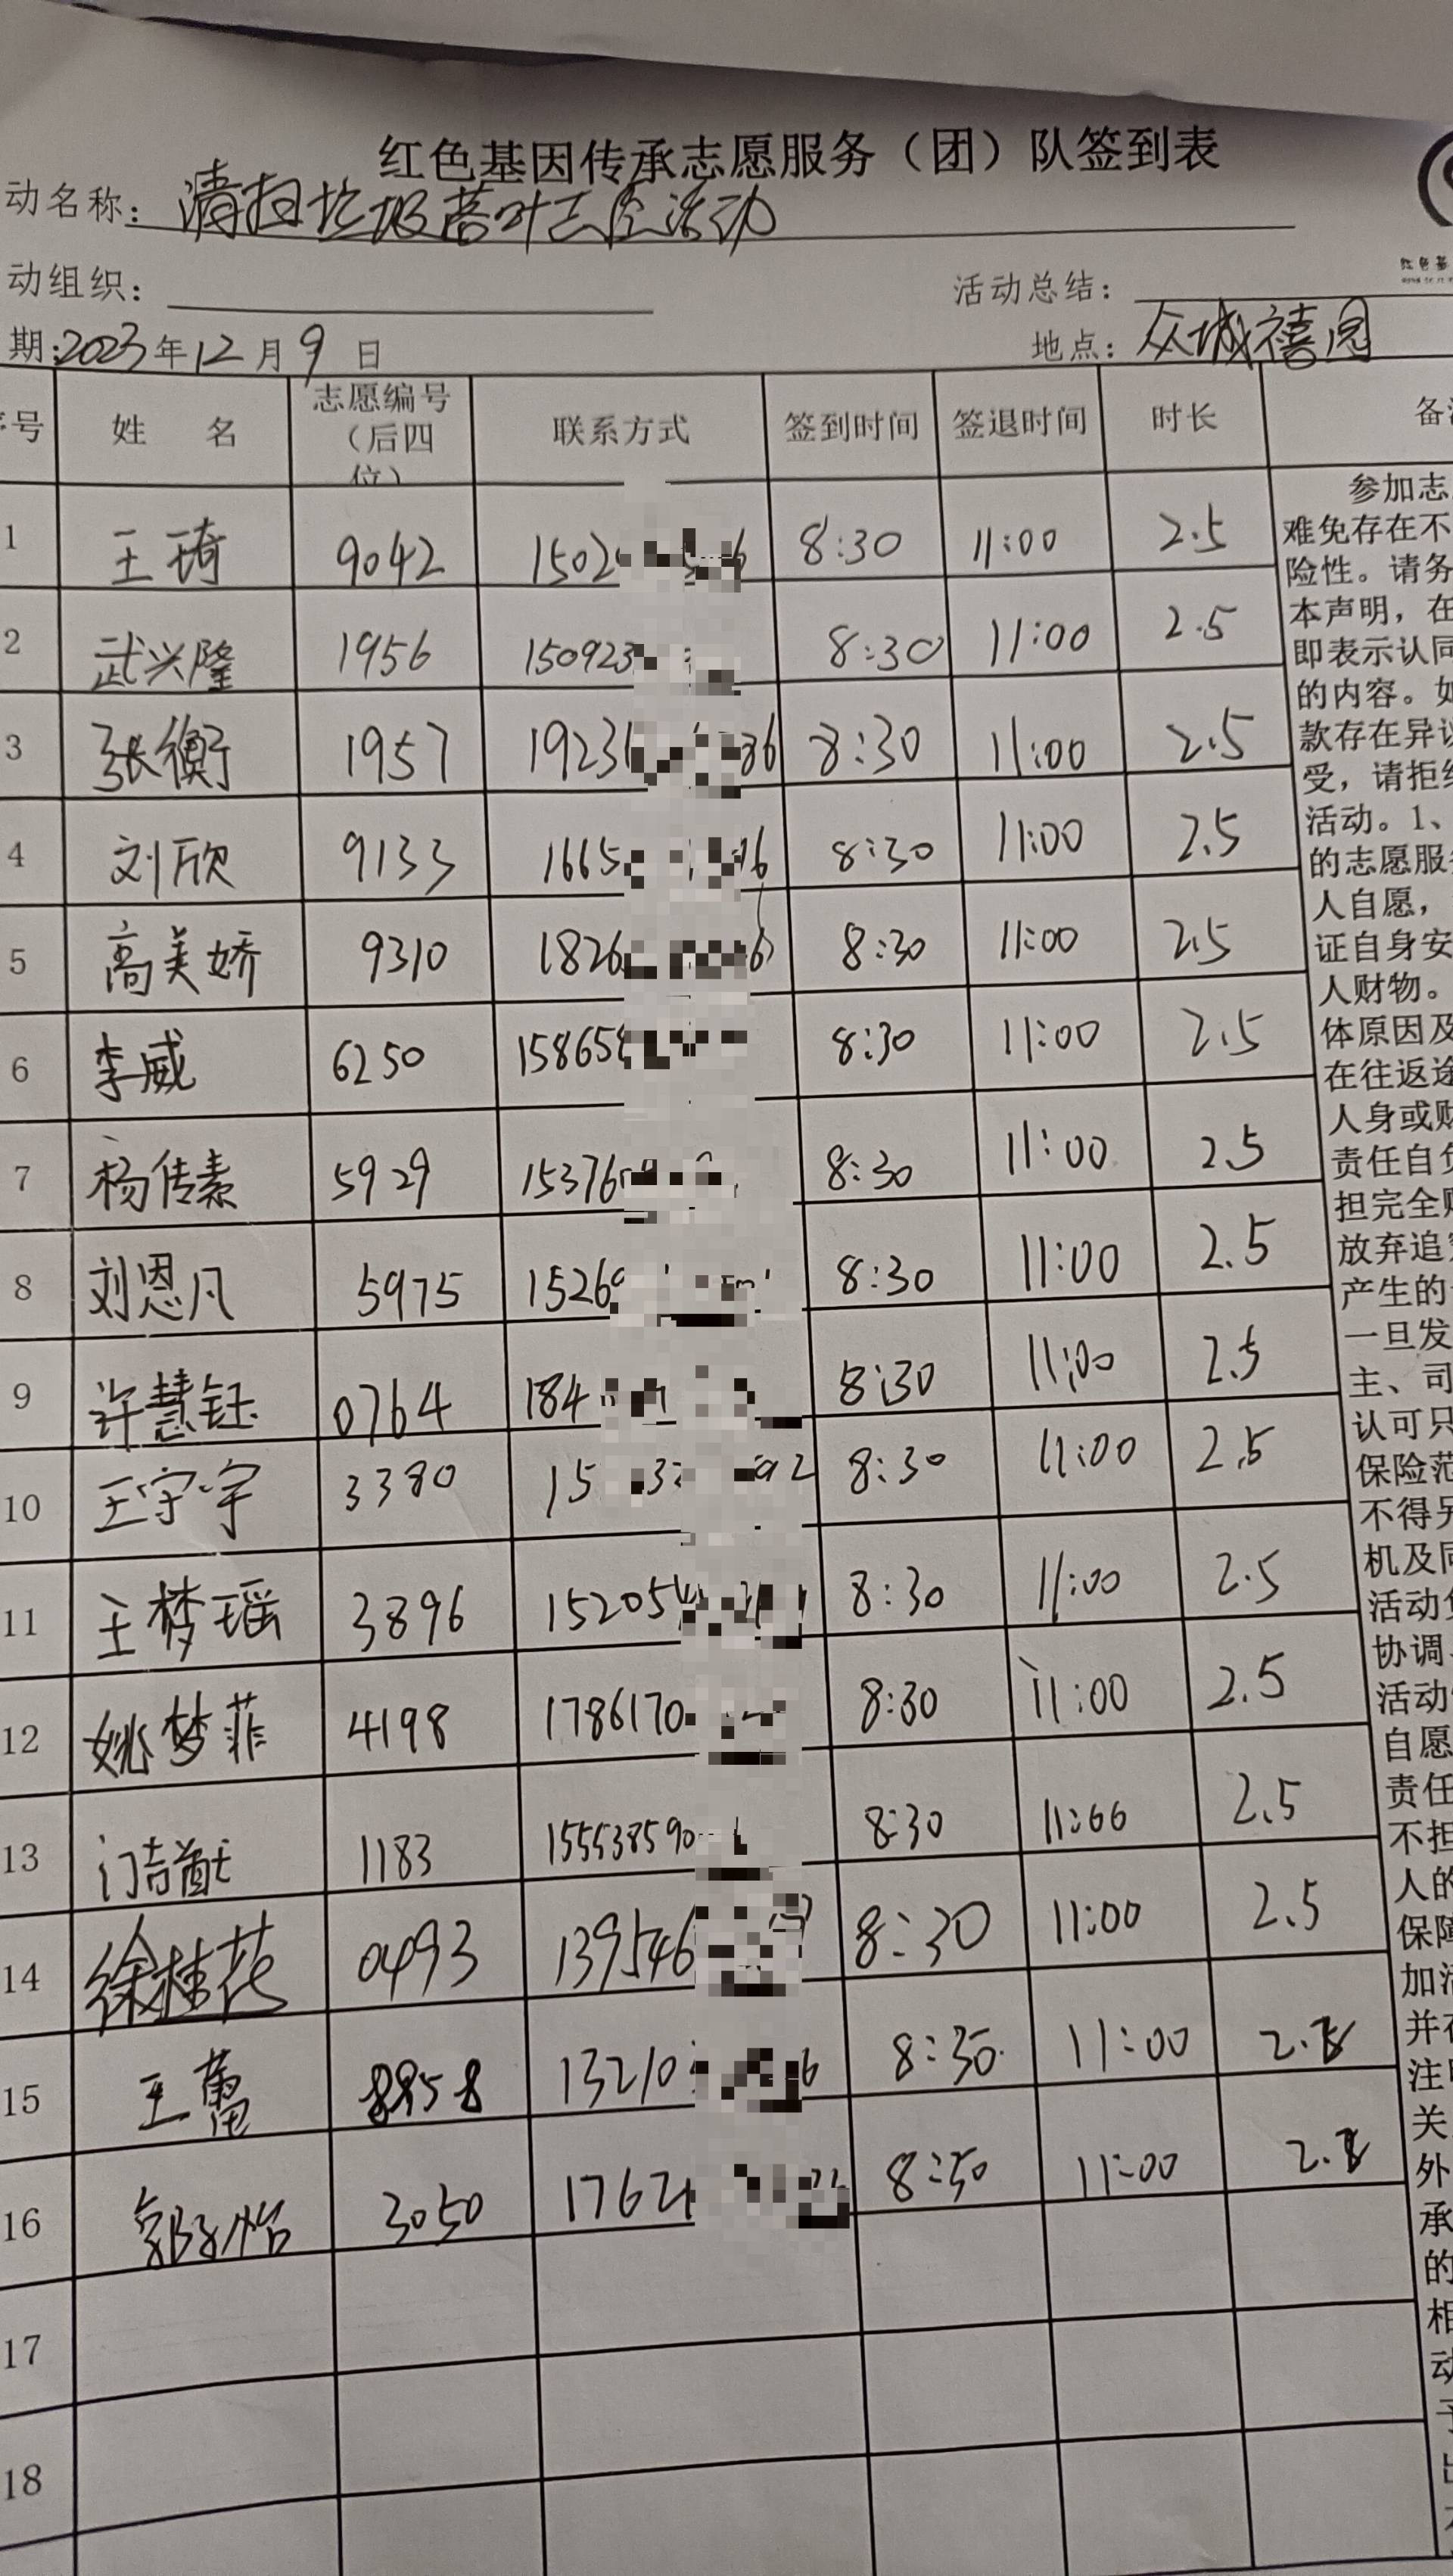 红色基因传承志愿服务（团）队签到表
动名称：清扫垃圾落叶志愿活动
动组织：
活动总结：
期：2023年12月9日
地点：众城禧园
序号 姓 名 志愿编号（后四位） 联系方式 签到时间 签退时间 时长 备注
1 王琦 9042 1502 6 8:30 11:00 2.5
2 武兴隆 1956 150923 8:30 11:00 2.5
3 张衡 1957 1923 86 8:30 11:00 2.5
4 刘欣 9133 1665 16 8:30 11:00 2.5
5 高美娇 9310 1826 6 8:30 11:00 2.5
6 李威 6250 15865 8:30 11:00 2.5
7 杨传素 5929 15376 8:30 11:00 2.5
8 刘恩凡 5975 1526 8:30 11:00 2.5
9 许慧钰 0764 184 8:30 11:00 2.5
10 王宁宇 3380 15 3 2 8:30 11:00 2.5
11 王梦瑶 3896 152054 8:30 11:00 2.5
12 姚梦菲 4198 1786170 8:30 11:00 2.5
13 门吉猷 1183 155538590 8:30 11:00 2.5
14 徐桂花 0493 139546 8:30 11:00 2.5
15 王 8958 13210 6 8:30 11:00 2.5
16 郭怡 3050 1762 22 8:30 11:00 2.5
17
18
参加志
难免存在不
险性。请务
本声明，在
即表示认同
的内容。如
款存在异议
受，请拒绝
活动。1、
的志愿服务
人自愿，
证自身安
人财物。
体原因及
在往返途
人身或财
责任自负
担完全赔
放弃追究
产生的
一旦发
主、司
认可只
保险范
不得另
机及同
活动负
协调、
活动
自愿
责任
不担
人的
保障
加活
并在
注明
关
外
承
的
相
动
予